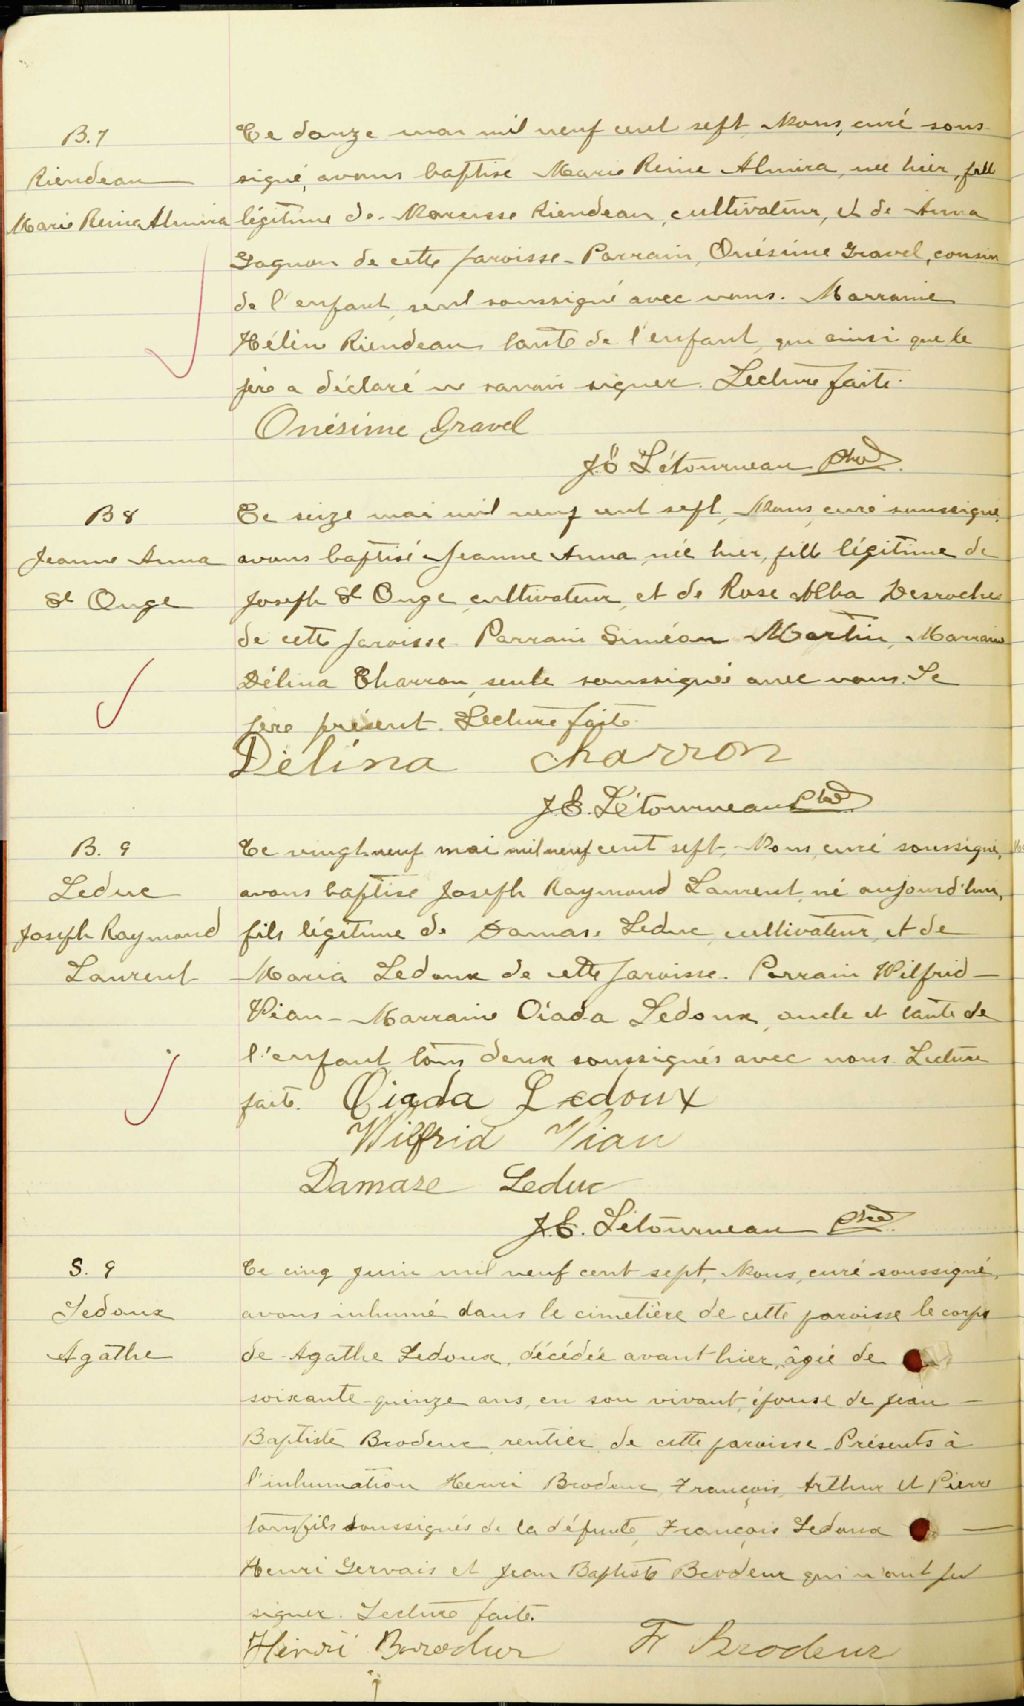 B.7
Riendeau
Marie Reine Almira
Ce douze mai mil neuf cent sept, Nous, curé sous-
signé, avons baptisé Marie Reine Almira, née hier, fille
légitime de Narcisse Riendeau, cultivateur, et de Anna
Gagnon de cette paroisse. Parrain, Onésime Gravel, cousin
de l'enfant, seul soussigné avec nous. Marraine
Hélène Riendeau tante de l'enfant, qui ainsi que le
père a déclaré ne savoir signer. Lecture faite.
Onésime Gravel
J.E. Létourneau Ptre
B 8
Jeanne Anna
St Onge
Ce seize mai mil neuf cent sept, Nous, curé soussigné,
avons baptisé Jeanne Anna, née hier, fille légitime de
Joseph St Onge, cultivateur, et de Rose Alba Desroches
de cette paroisse. Parrain Siméon Martin, Marraine
Délina Charron, seule soussignée avec nous. Le
père présent. Lecture faite.
Délina Charron
J.E. Létourneau Ptre
B. 9
Leduc
Joseph Raymond
Laurent
Ce vingt neuf mai mil neuf cent sept, Nous, curé soussigné,
avons baptisé Joseph Raymond Laurent, né aujourd'hui,
fils légitime de Damase Leduc, cultivateur, et de
Maria Ledoux de cette paroisse. Parrain Wilfrid
Vian – Marraine Oiada Ledoux, oncle et tante de
l'enfant, tous deux soussignés avec nous. Lecture
faite. Oiada Ledoux
Wilfrid Vian
Damase Leduc
J.E. Létourneau Ptre
S. 9
Ledoux
Agathe
Ce cinq juin mil neuf cent sept, Nous, curé soussigné,
avons inhumé dans le cimetière de cette paroisse le corps
de Agathe Ledoux, décédée avant-hier, âgée de
soixante-quinze ans, en son vivant, épouse de Jean –
Baptiste Brodeur, rentier, de cette paroisse. Présents à
l'inhumation Henri Brodeur, François, Arthur et Pierre
tous fils soussignés de la défunte, François Ledoux –
Henri Gervais et Jean Baptiste Brodeur qui n'ont pu
signer. Lecture faite.
Henri Brodeur Fr Brodeur